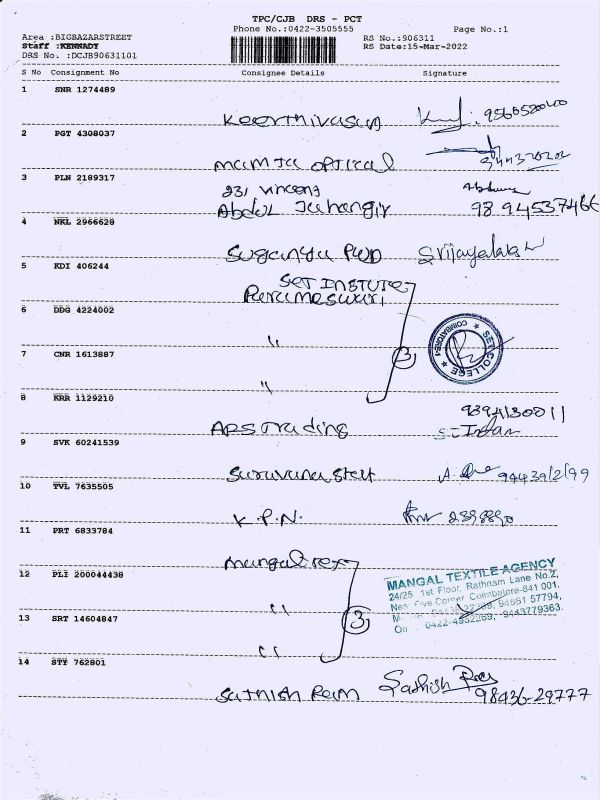 TPC/CJB DRS - PCT
Phone No.:0422-3505555 Page No.:1
Area :BIGBAZARSTREET RS No.:906311
Staff :KENNADY RS Date:15-Mar-2022
DRS No. :DCJB90631101
S No Consignment No Consignee Details Signature
1 SNR 1274489
Keerthivasan
2 PGT 4308037
mamta optical
3 PLN 2189317
231 Vincent
Abdul Jahangir 98 94537466
4 NKL 2966628
Suganya PWD Srijayalaks
5 KDI 406244
SET INSTUTE
Parameswari
6 DDG 4224002
"
7 CNR 1613887
3
SET COLLEGE
COIMBATORE-1
"
8 KRR 1129210
9394130011
ARS Trading
9 SVK 60241539
Saravana Stall
10 TVL 7635505
K.P.N.
11 PRT 6833784
Mangal tex
12 PLI 200044438
MANGAL TEXTILE AGENCY
24/25, 1st Floor, Rathnam Lane No.2,
Near Five Corner Coimbatore-641 001.
94881 57794,
"
13 SRT 14604847
3
0422-4952269, 9443779363.
"
14 STY 762801
Sathish Ram Sathish Ram
98436-29777